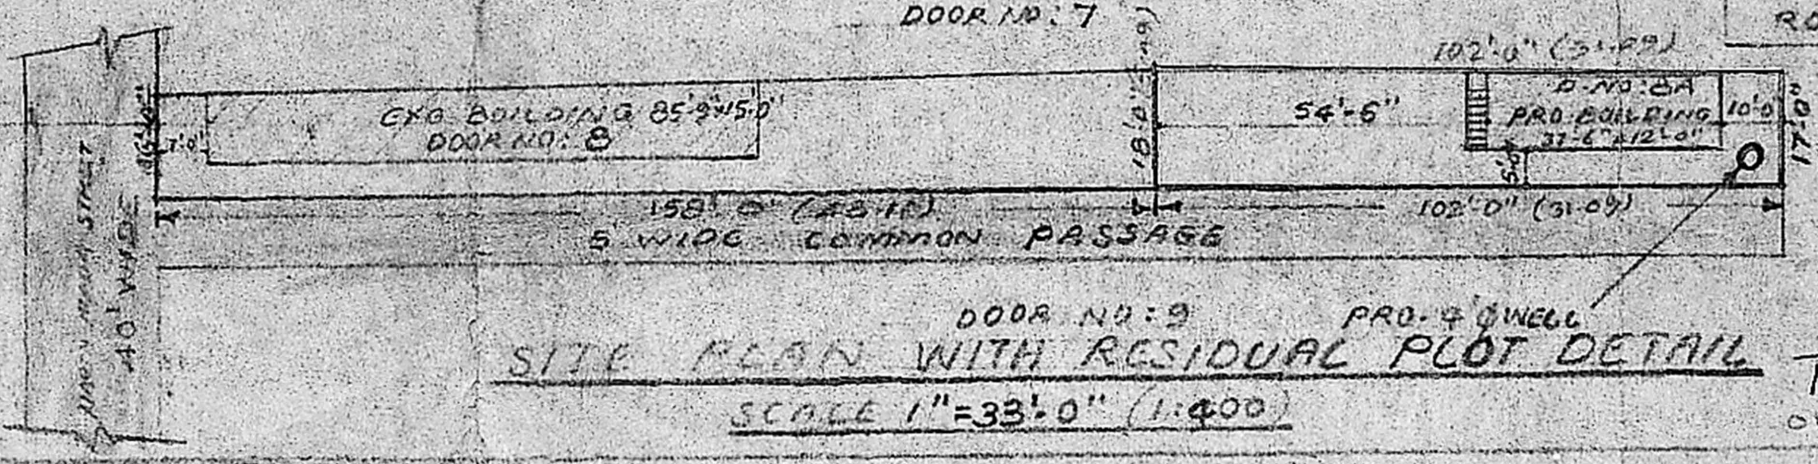 DOOR NO: 7
102'-0" (31.09)
EXG BUILDING 85'-9"x15'-0"
DOOR NO: 8
7'-0"
18'-0"
54'-6"
D-NO: 8A
PRO BUILDING
37'-6" x 12'-0"
10'-0
17'-0"
5'-0"
40' WIDE
158'-0"
102'-0" (31.09)
5' WIDE COMMON PASSAGE
DOOR NO: 9
PRO. 4'φ WELL
SITE PLAN WITH RESIDUAL PLOT DETAIL
SCALE 1"=33'-0" (1:400)